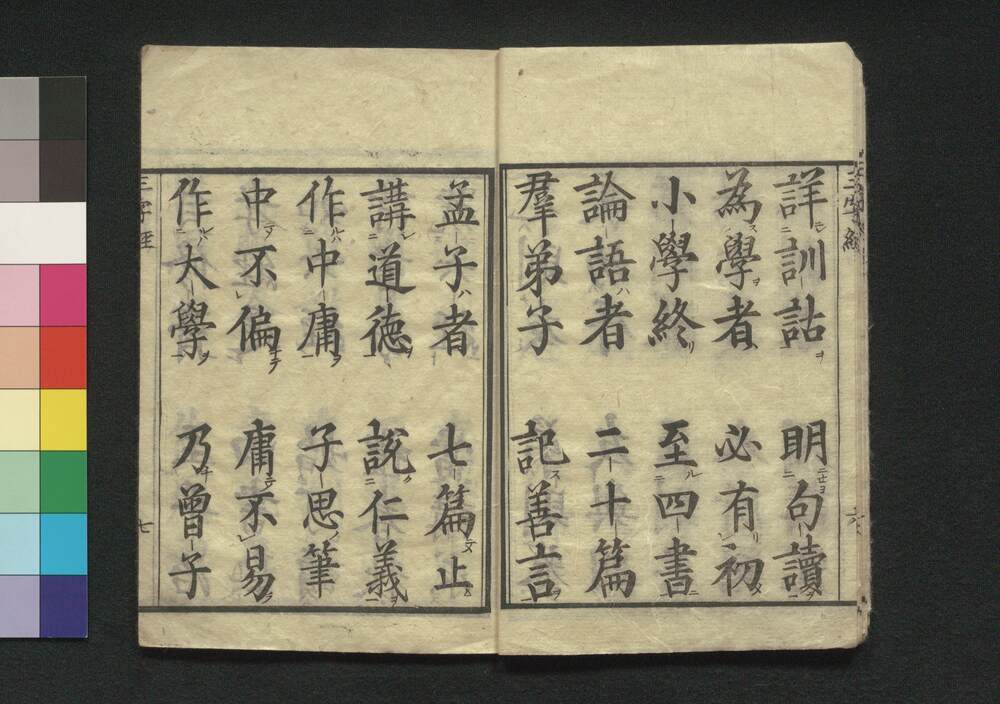 三字經
詳訓詁 明句讀
為學者 必有初
小學終 至四書
論語者 二十篇
羣弟子 記善言
六
孟子者 七篇止
講道德 説仁義
作中庸 子思筆
中不偏 庸不易
作大學 乃曾子
三字經
七